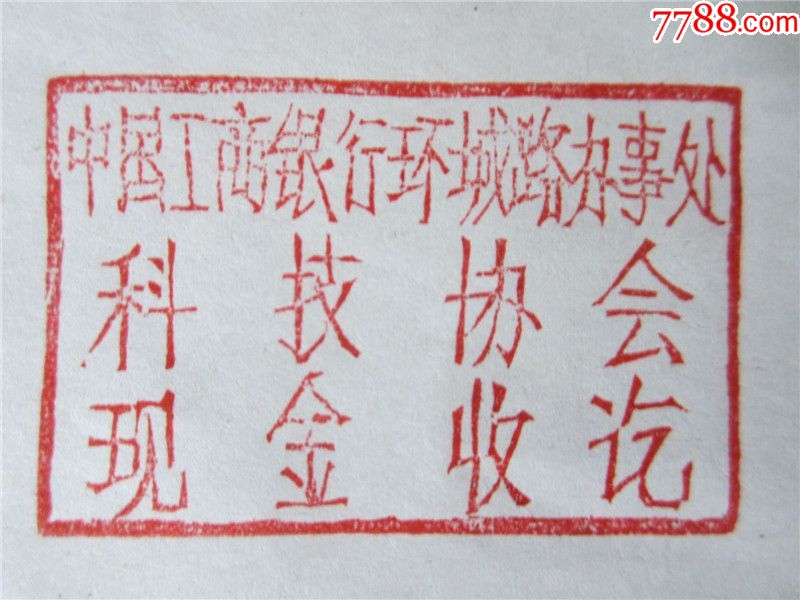 7788.com
中国工商银行环城路办事处
科技协会
现金收讫